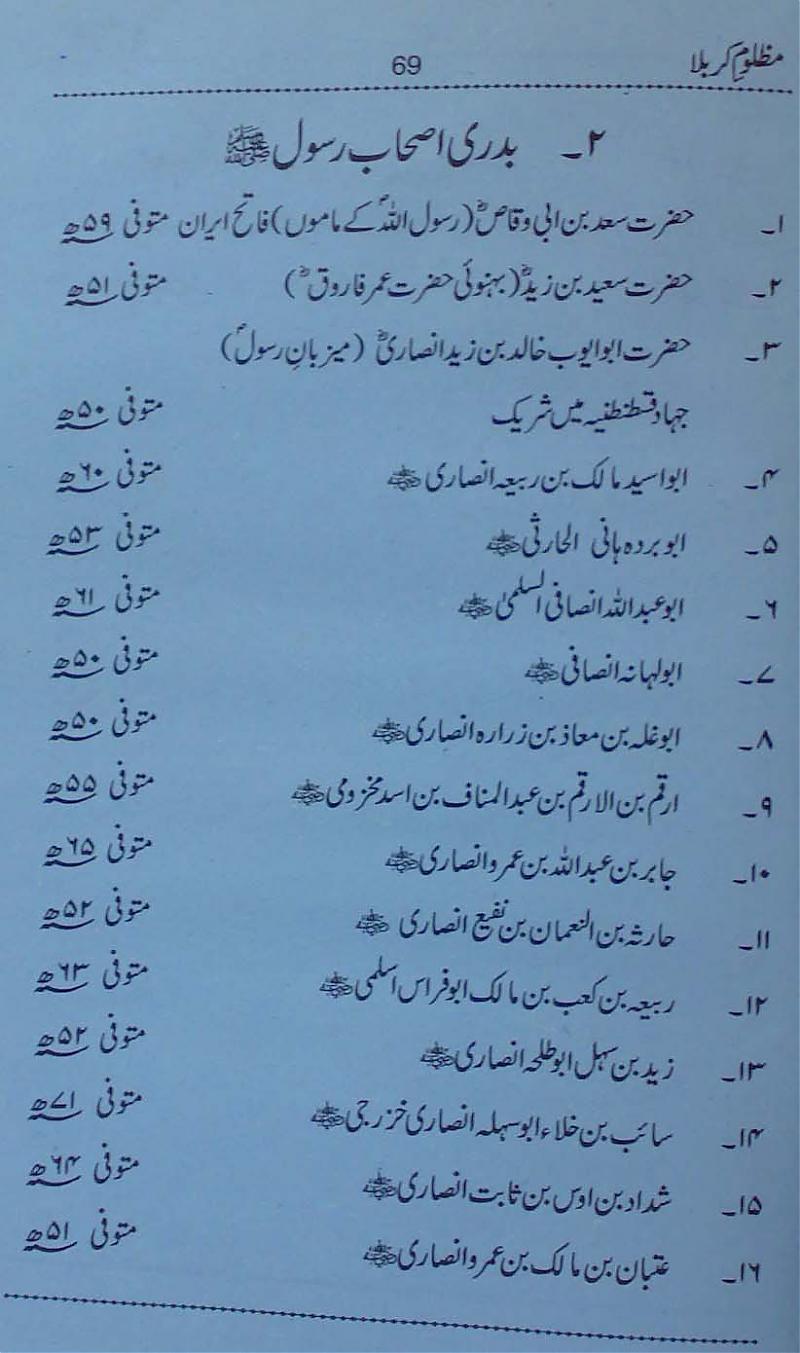 مظلومِ کربلا 69
۲۔ بدری اصحاب رسول ﷺ
۱۔ حضرت سعد بن ابی وقاصؓ (رسول اللہؐ کے ماموں) فاتح ایران متوفی ۵۹ھ
۲۔ حضرت سعید بن زیدؓ (بہنوئی حضرت عمر فاروقؓ) متوفی ۵۱ھ
۳۔ حضرت ابو ایوب خالد بن زید انصاریؓ (میزبانِ رسولؐ)
جہاد قسطنطنیہ میں شریک متوفی ۵۰ھ
۴۔ ابو اسید مالک بن ربیعہ انصاری رضی اللہ عنہ متوفی ۶۰ھ
۵۔ ابو بردہ ہانی الحارثی رضی اللہ عنہ متوفی ۵۳ھ
۶۔ ابو عبداللہ انصافی السلمیٰ رضی اللہ عنہ متوفی ۶۱ھ
۷۔ ابولہانہ انصافی رضی اللہ عنہ متوفی ۵۰ھ
۸۔ ابو غلہ بن معاذ بن زرارہ انصاری رضی اللہ عنہ متوفی ۵۰ھ
۹۔ ارقم بن الارقم بن عبدالمناف بن اسد مخزومی رضی اللہ عنہ متوفی ۵۵ھ
۱۰۔ جابر بن عبداللہ بن عمرو انصاری رضی اللہ عنہ متوفی ۶۵ھ
۱۱۔ حارثہ بن النعمان بن نفیع انصاری رضی اللہ عنہ متوفی ۵۲ھ
۱۲۔ ربیعہ بن کعب بن مالک ابو فراس اسلمی رضی اللہ عنہ متوفی ۶۳ھ
۱۳۔ زید بن سہل ابو طلحہ انصاری رضی اللہ عنہ متوفی ۵۲ھ
۱۴۔ سائب بن خلاء ابو سہلہ انصاری خزرجی رضی اللہ عنہ متوفی ۷۱ھ
۱۵۔ شداد بن اوس بن ثابت انصاری رضی اللہ عنہ متوفی ۶۴ھ
۱۶۔ عتبان بن مالک بن عمرو انصاری رضی اللہ عنہ متوفی ۵۱ھ